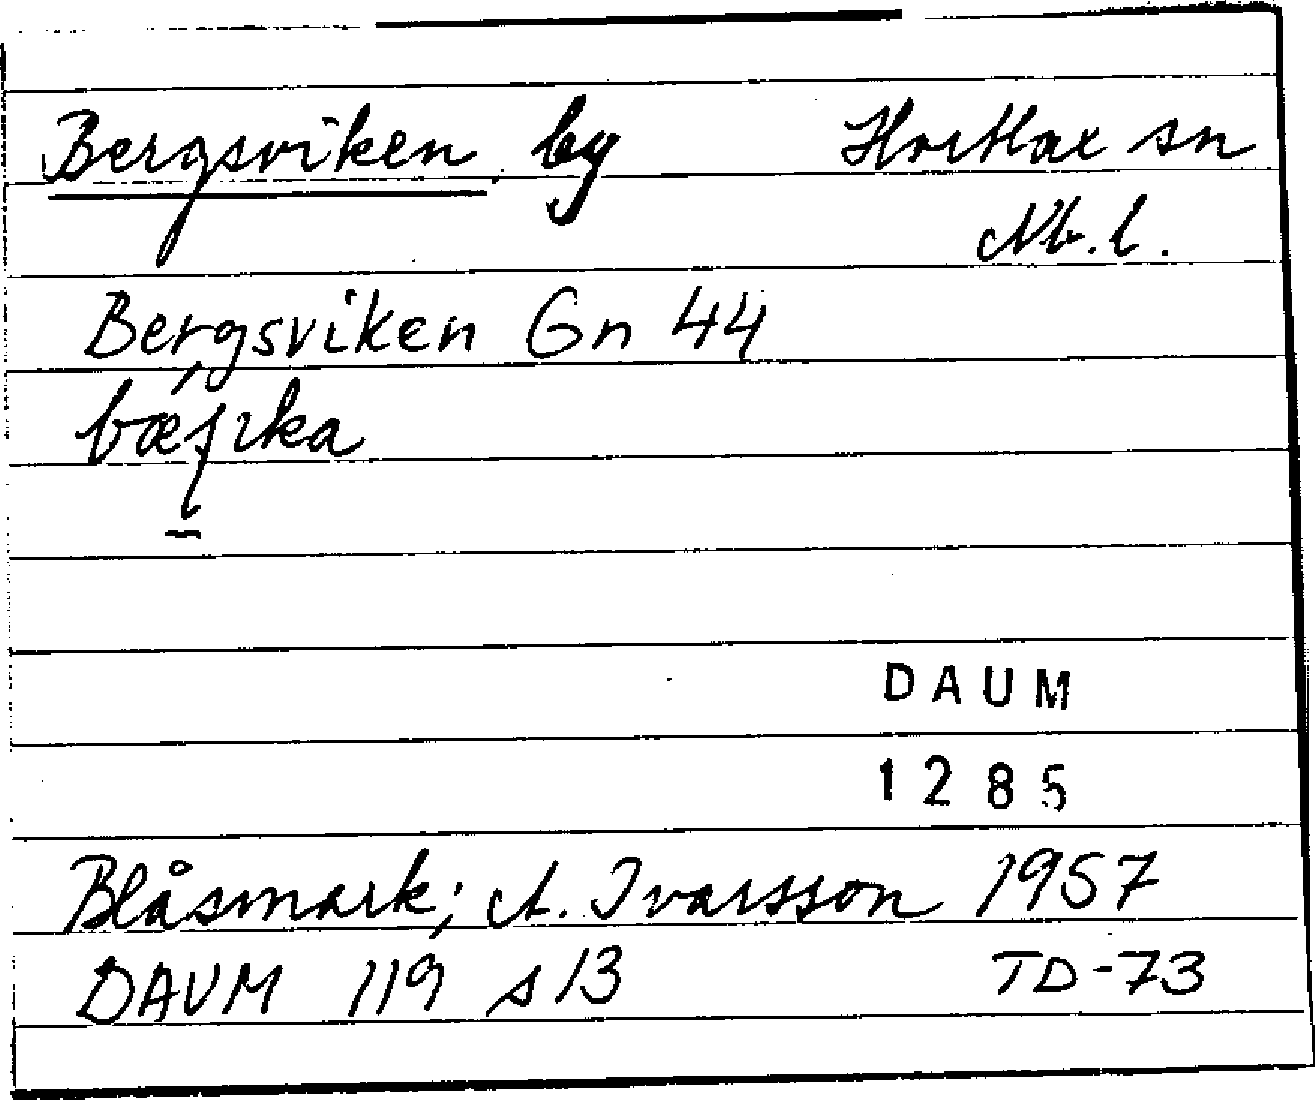 Bergsviken by Hortlax sn
Nb. l.
Bergsviken Gn 44
DAUM
1285
Blåsmark; A. Ivarsson 1957
DAUM 119 s 13 TD-73